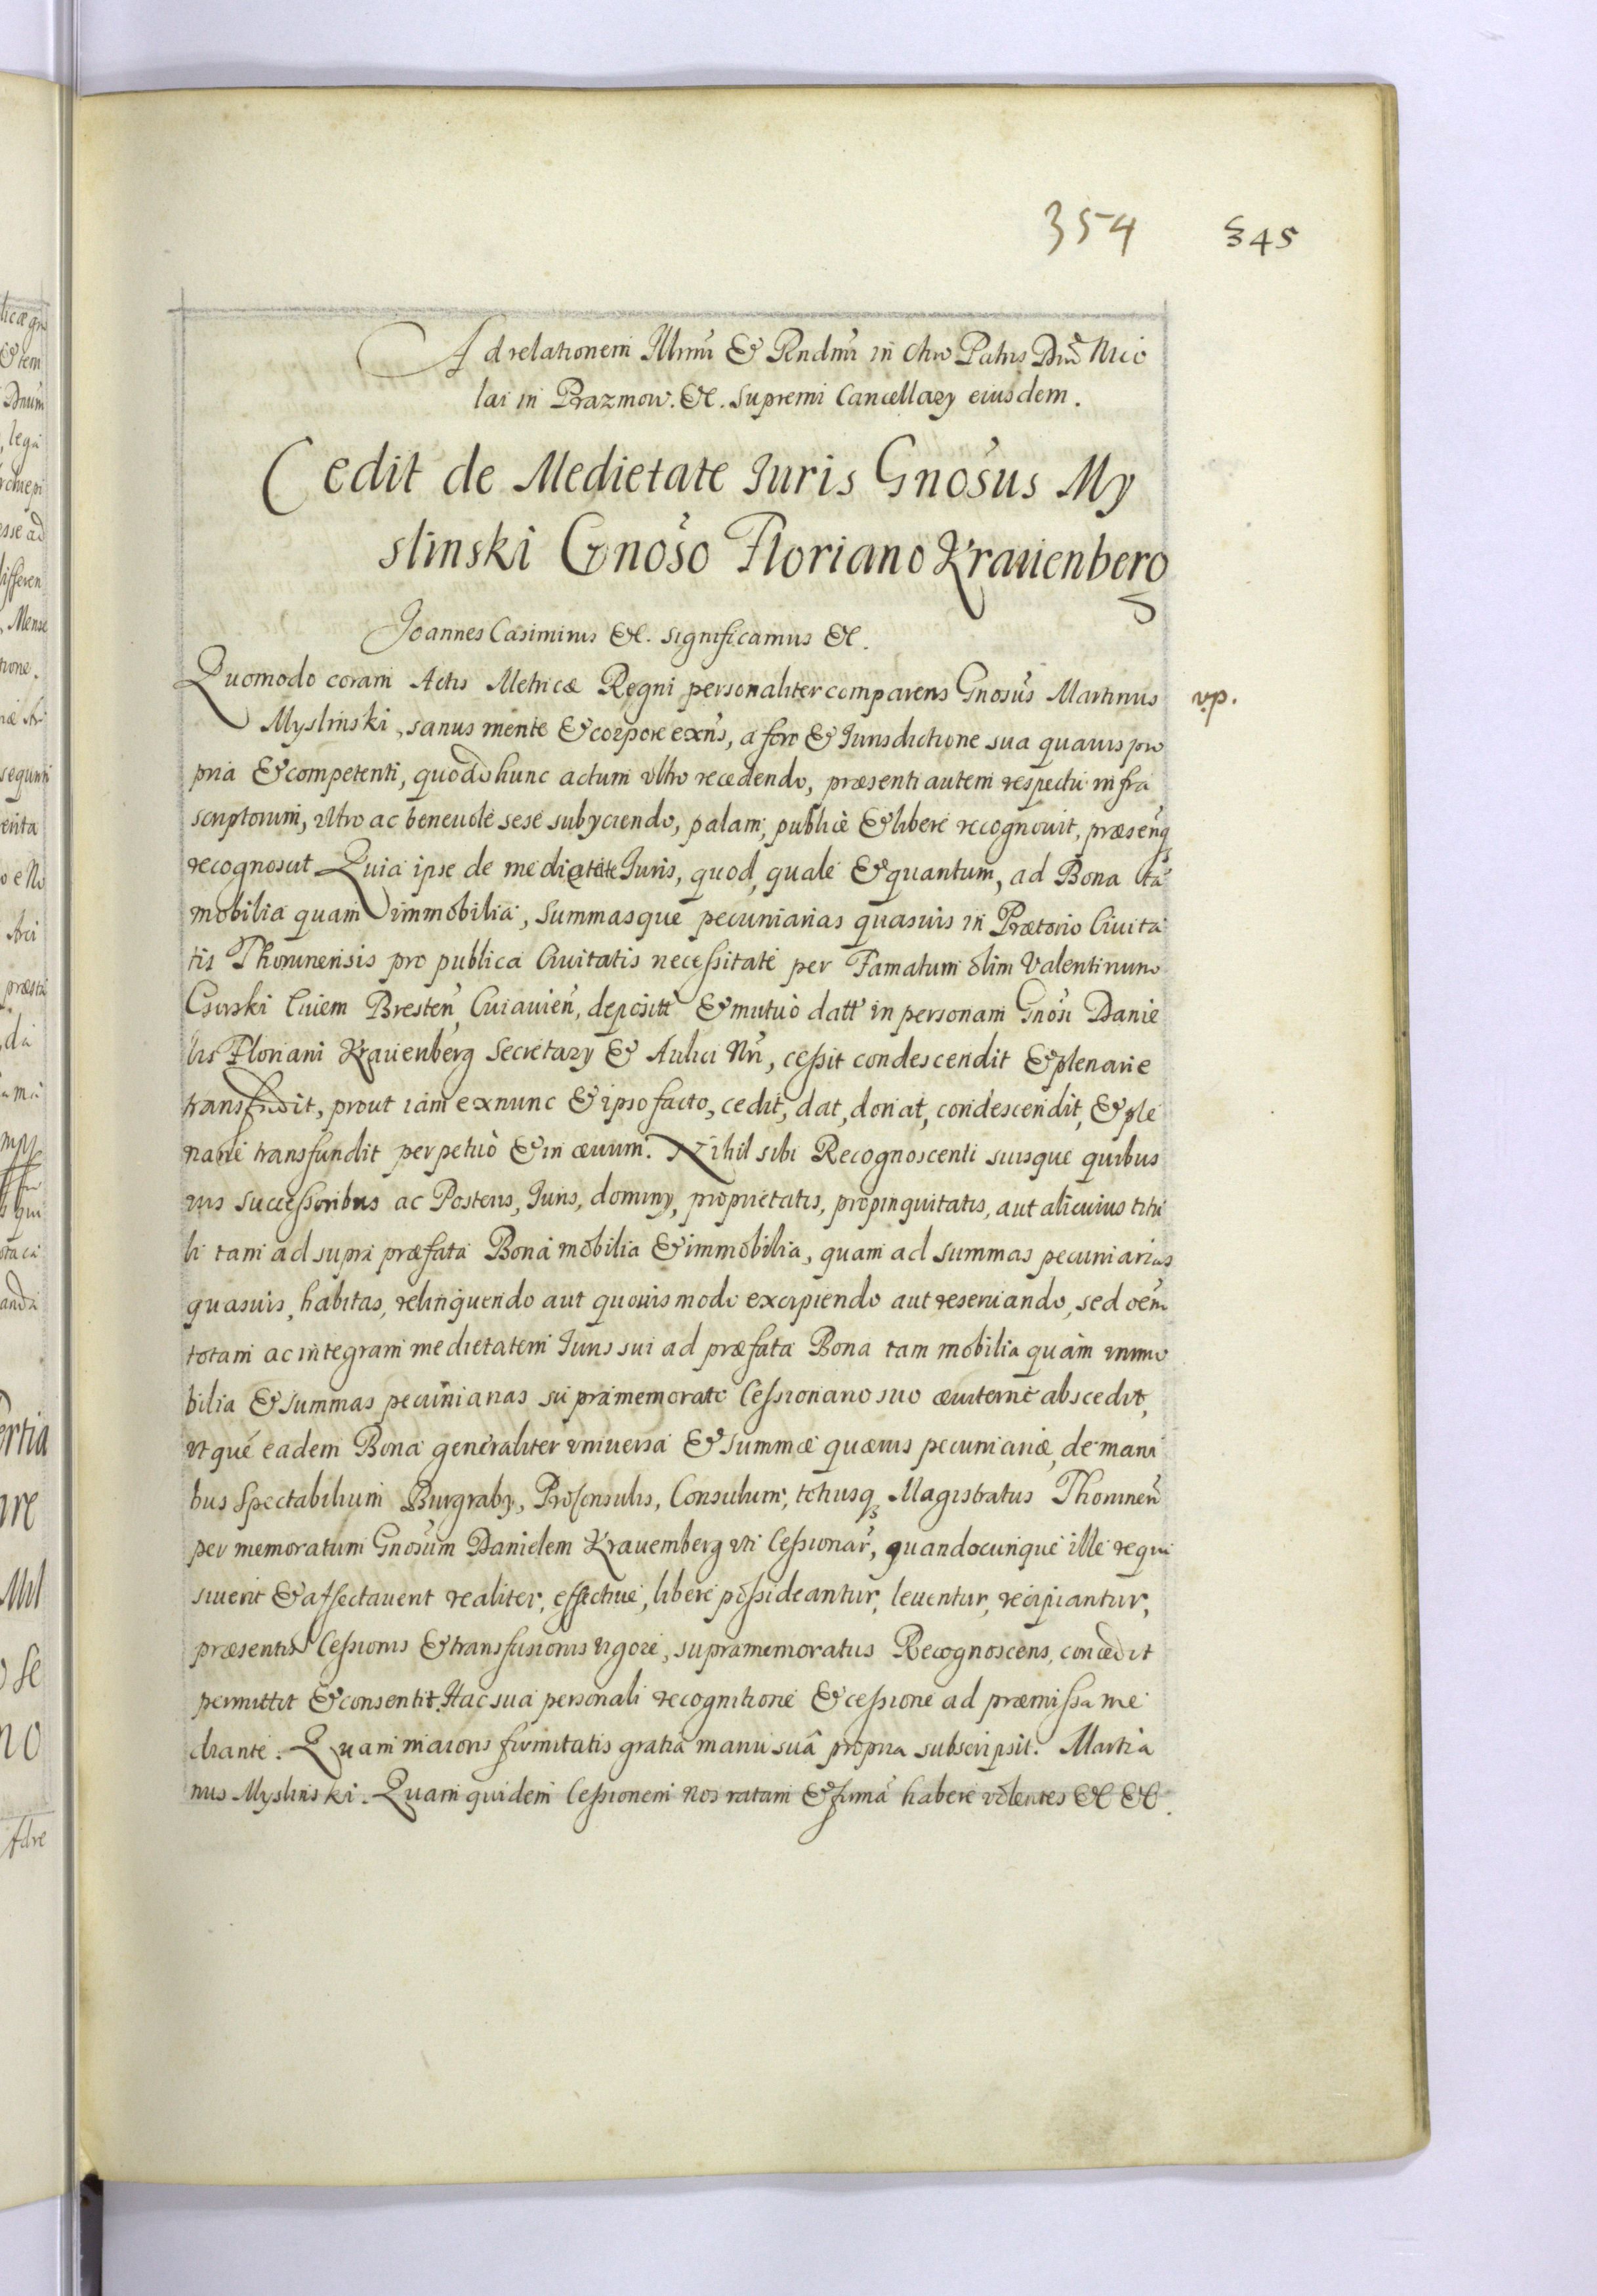 354 345
Ad relationem Illrmi & Rndmi in Chro Patris Dni Nico
lai in Prazmow. &c. Supremi Cancellary eiusdem.
Cedit de Medietate Iuris Gnosus My
slinski Gnoso Floriano Krauenberg
Joannes Casimirus &c. significamus &c.
Quomodo coram Actis Metricæ Regni personaliter comparens Gnosus Martinus vp.
Myslinski, sanus mente & corpore exns, a foro & Iurisdictione sua quauis pro
pria & competenti, quodo hunc actum vltro recedendo, præsenti autem respectu infra
scriptorum, vltro ac beneuole sese subyciendo, palam, publicè & liberè recognouit, præsenq
recognoscit Quia ipse de medietate Iuris, quod, quale & quantum, ad Bona tã
mobilia quam immobilia, Summasque pecuniarias quasuis in Prætorio Ciuita
tis Thorunensis pro publica Ciuitatis necessitate per Famatum olim Valentinum
Ciuem Bresten Cuiauien, depositt & mutuò datt in personam Gnosi Danie
lis Floriani Krauenberg Secretary & Aulici Nri, cessit condescendit & plenarie
transfudit, prout iam exnunc & ipso facto, cedit, dat, donat, condescendit, & ple
narie transfundit perpetuò & in æuum. Nihil sibi Recognoscenti suisque quibus
uis successoribus ac Posteris, Iuris, dominy, proprietatis, propinquitatis, aut alicuius titu
li tam ad supra præfata Bona mobilia & immobilia, quam ad summas pecuniarias
quasuis, habitas, relinquendo aut quouis modo excipiendo aut reseruando, sed oem
totam ac integram medietatem Iuris sui ad præfata Bona tam mobilia quàm immo
bilia & summas pecuniarias supramemorato Cessionario suo æuiternè abscedit,
vtque eadem Bona generaliter vniuersa & summæ quæuis pecuniariæ, de mani
bus Spectabilium Burgraby, Proconsulis, Consulum, totiusq Magistratus Thorunen
per memoratum Gnosum Danielem Krauemberg vti Cessionar, quandocunque ille requi
siuerit & affectauerit realiter, effectiue, libere possideantur, leuentur, recipiantur,
præsentis Cessionis & transfusionis vigore, supramemoratus Recognoscens, concedit
permittit & consentit. Hac sua personali recognitione & cessione ad præmissa me
diante. Quam maioris firmitatis gratia manu suâ propria subscripsit. Martia
nus Myslinski. Quam quidem Cessionem nos ratam & firmã habere volentes &c &c.